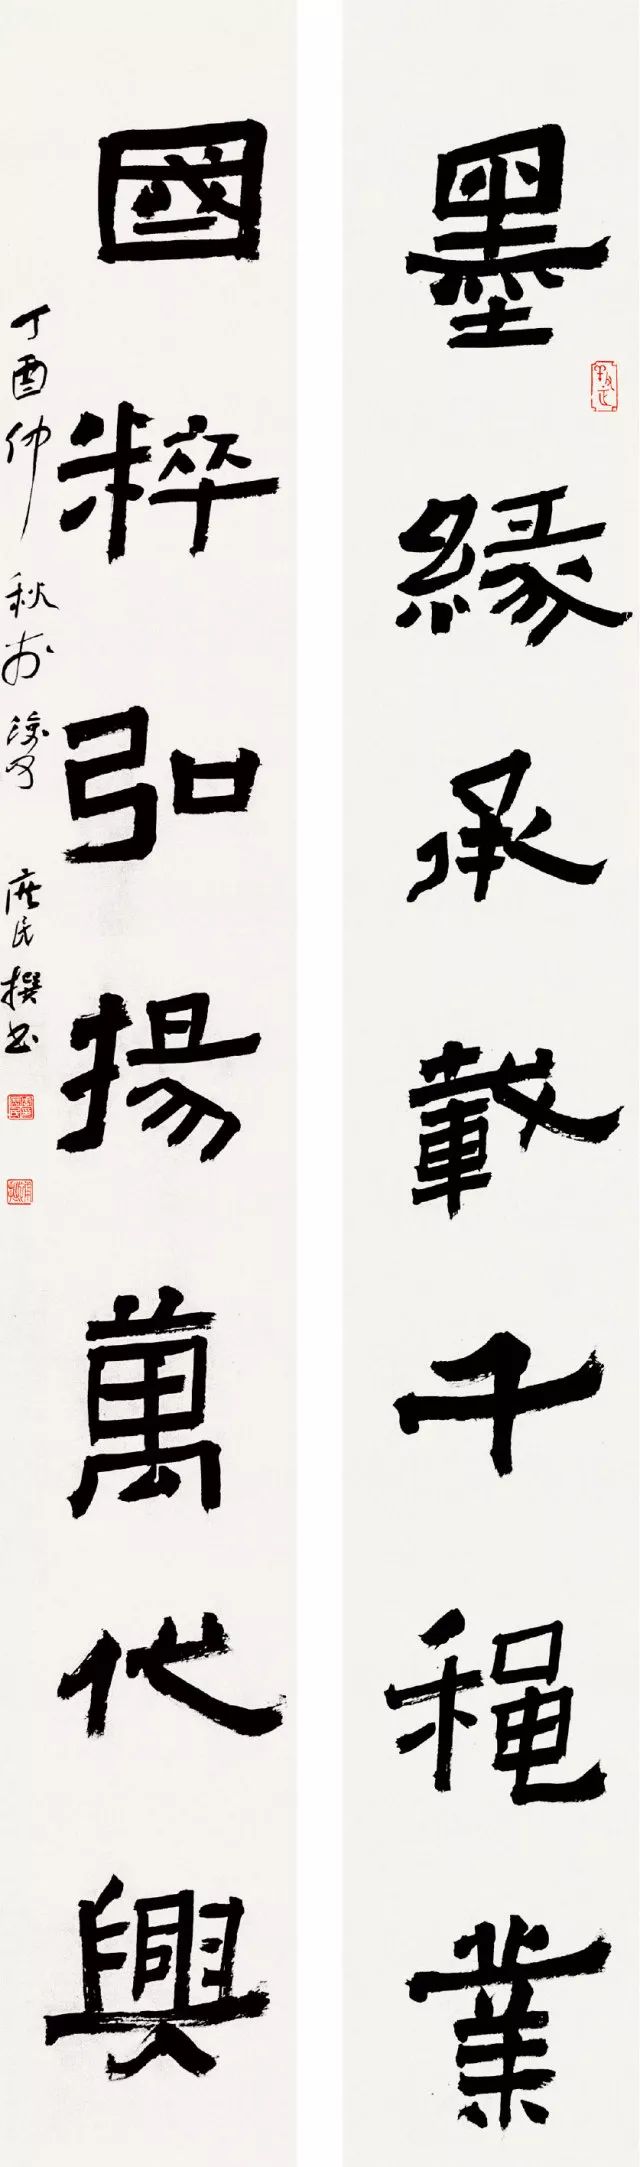 墨緣承載千穐業
國粹弘揚萬代興
丁酉仲秋於 民撰书